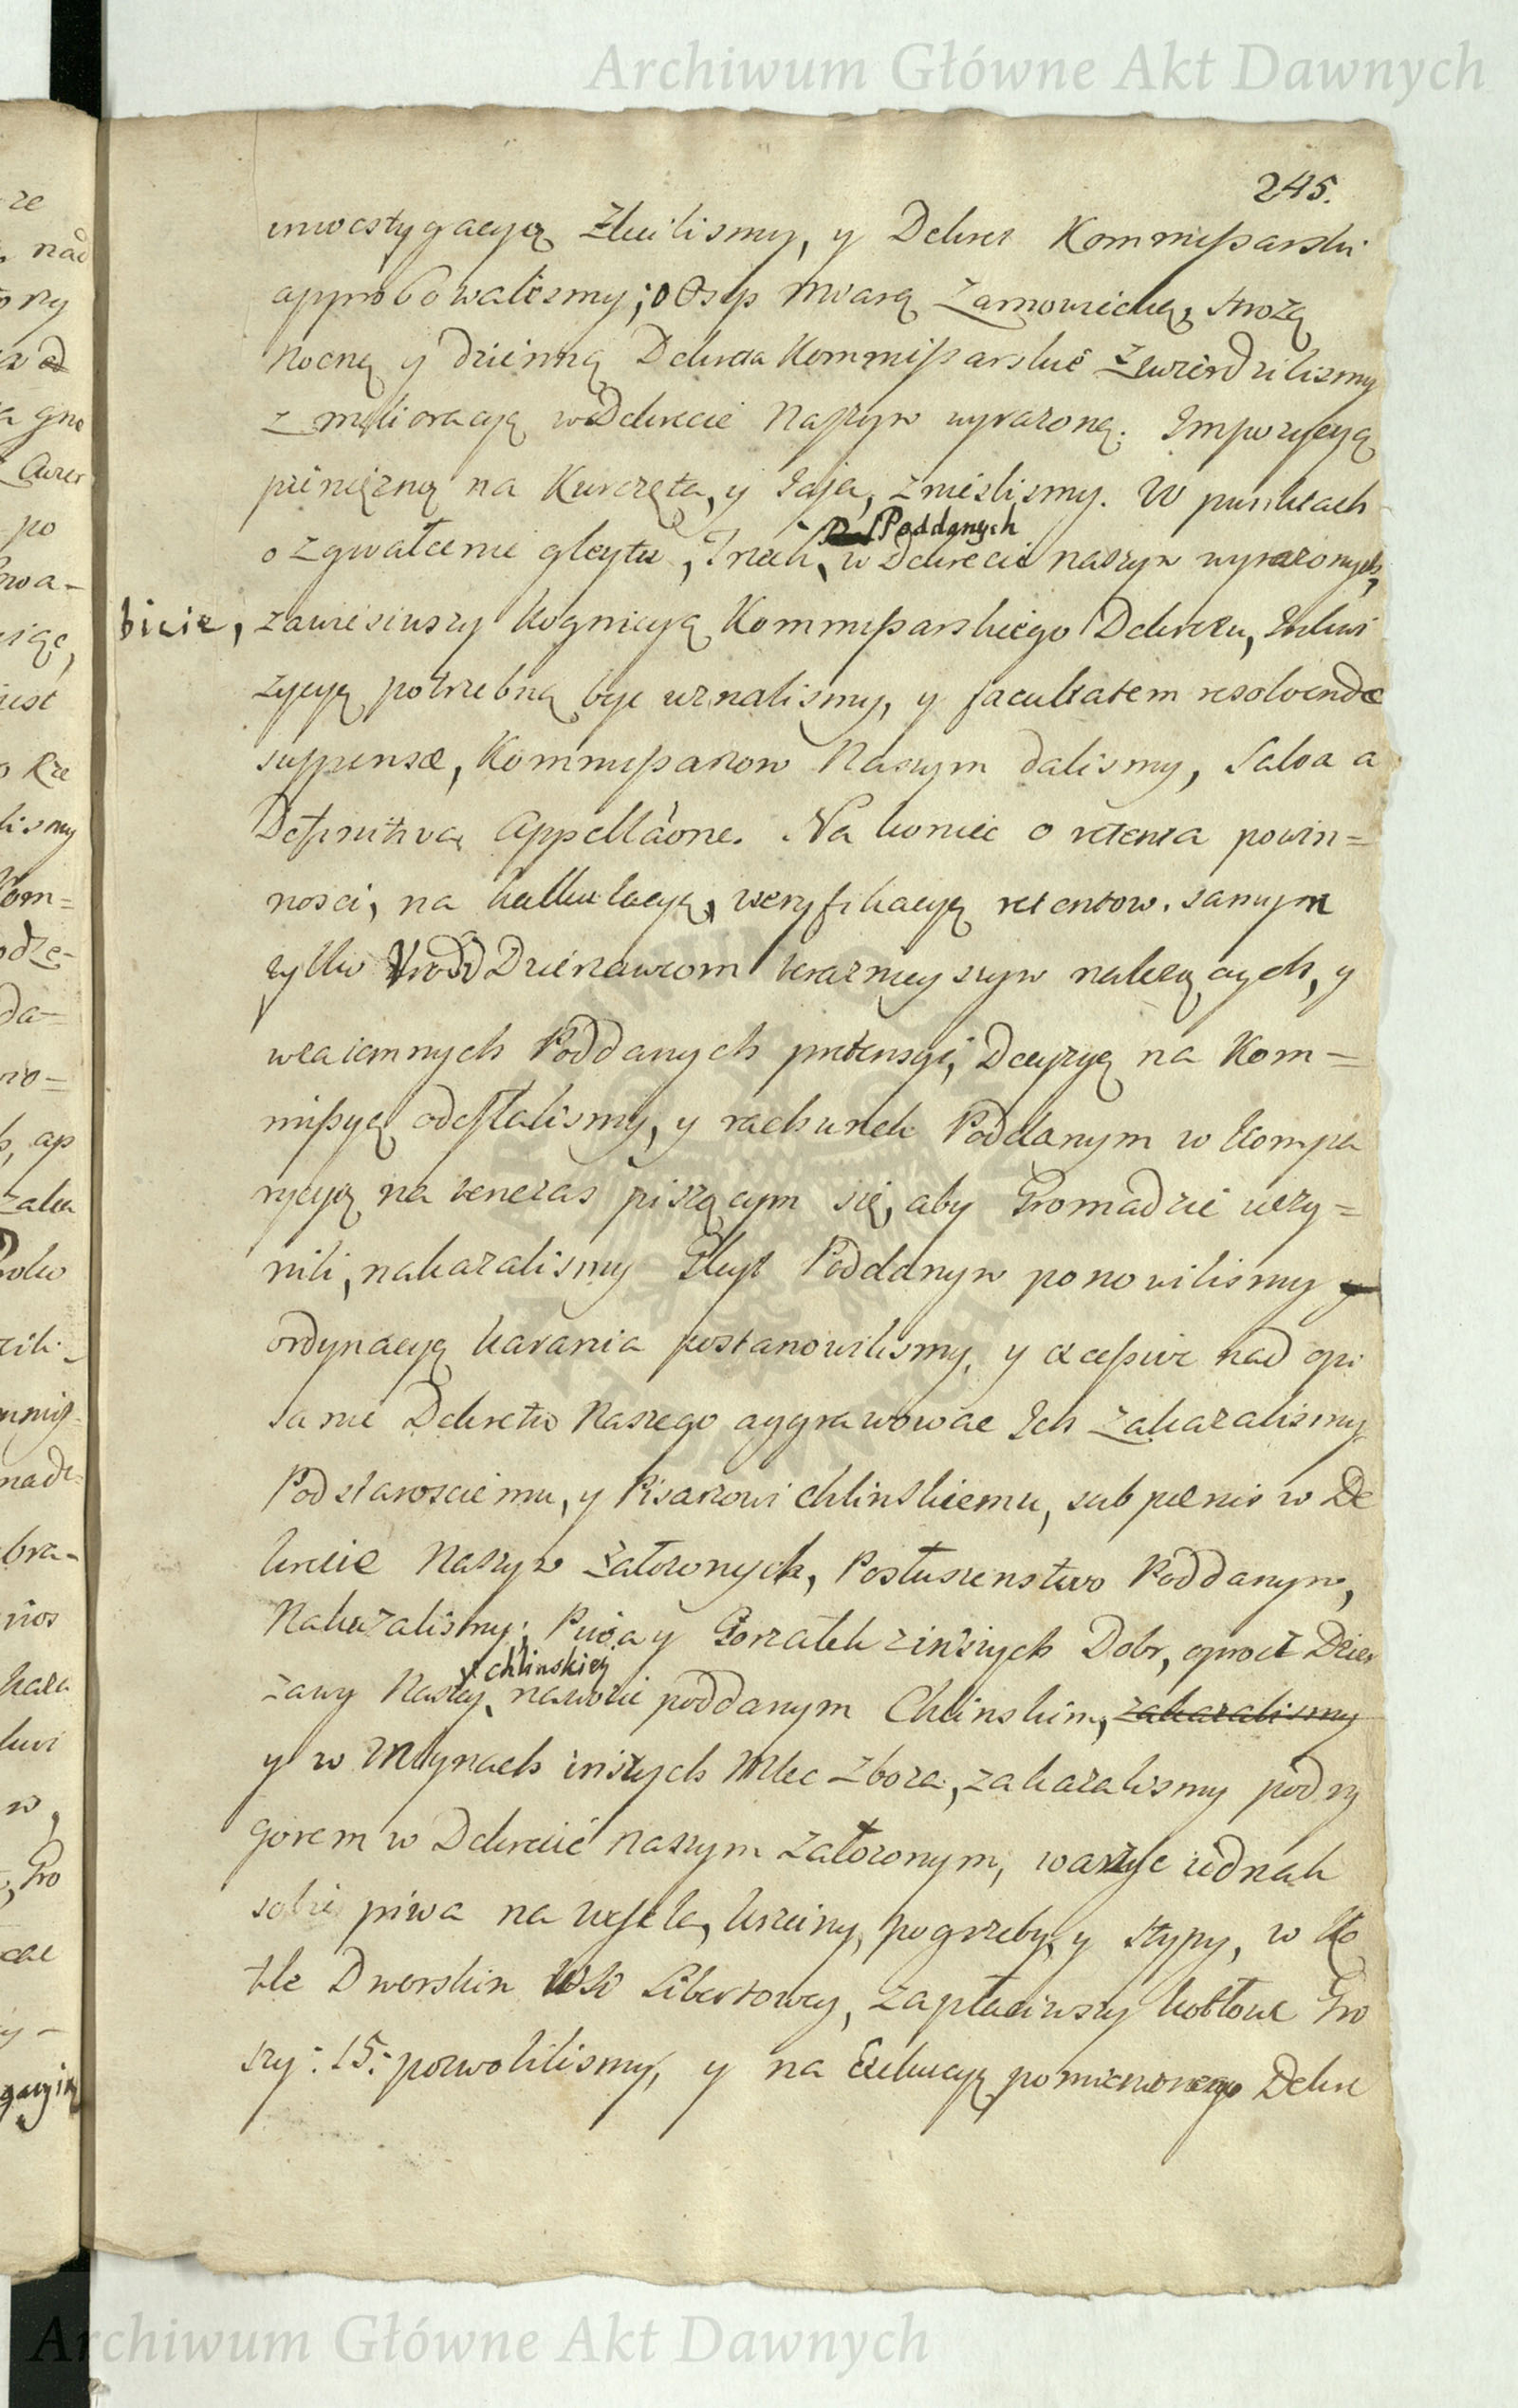 Archiwum Główne Akt Dawnych
245.
inwestygacyą zlecilismy, y Dekret Kommissarski
approbowalismy; o Osyp Miarą Zamowiedną, strożą
Nocną y dzienną Dekreta Kommissarskie ztwierdzilismy
z melioracyą w Dekrecie Naszym wyrazoną. Impozycyą
pieniężną na Kurczęta, y Jaja, znieslismy. W punktach
Poddanych
o zgwałcenie gleytu, Trzech, w Dekrecie naszym wyrazonych,
bicie, zawiesiwszy kognicyą Kommissarskiego Dekretu, Inkwi
zycyą potrzebną byc uznalismy, y facultatem resolvendae
suspensae, Kommissarzom Naszym dalismy, Salva a
Definitiva Appellaone. Na koniec o retenta powin=
nosci, na kalkulacyą, weryfikacyą retentow, samym
tylko Urodz Dzierzawcom teraznieyszym nalezących, y
wzaiemnych Poddanych pretensyi, Decyzyą na Kom=
missyą odesłalismy, y rachunek Poddanym w kompa
rycyą na tenczas piszącym się, aby Gromadzie uczy=
nili, nakazalismy Gleyt Poddanym ponowilismy y
ordynacyą karania postanowilismy, y excessive nad opi
sanie Dekretu Naszego aggrawowac Ich zakazalismy
Podstarosciemu, y Pisarzowi Chlinskiemu, sub poenis w De
krecie Naszym załozonych, Posłuszenstwo Poddanym,
Nakazalismy; Piwa y Gorzałek z inszych Dobr, oprocz Dzier
y Chlinskiey
zawy Naszey, nawozic poddanym Chlinskim, zakazalismy
y w Młynach inszych Mlec Zboza, zakazalismy pod ry
gorem w Dekrecie Naszym załozonym, warzyc iednak
sobie piwa na wesela, krzciny, pogrzeby, y stypy, w Ko
tle Dworskim wsi Libertowey, zapłaciwszy kotłowe Gro
szy: 15: pozwolilismy, y na Exekucyą pomienionego Dekre
Archiwum Główne Akt Dawnych